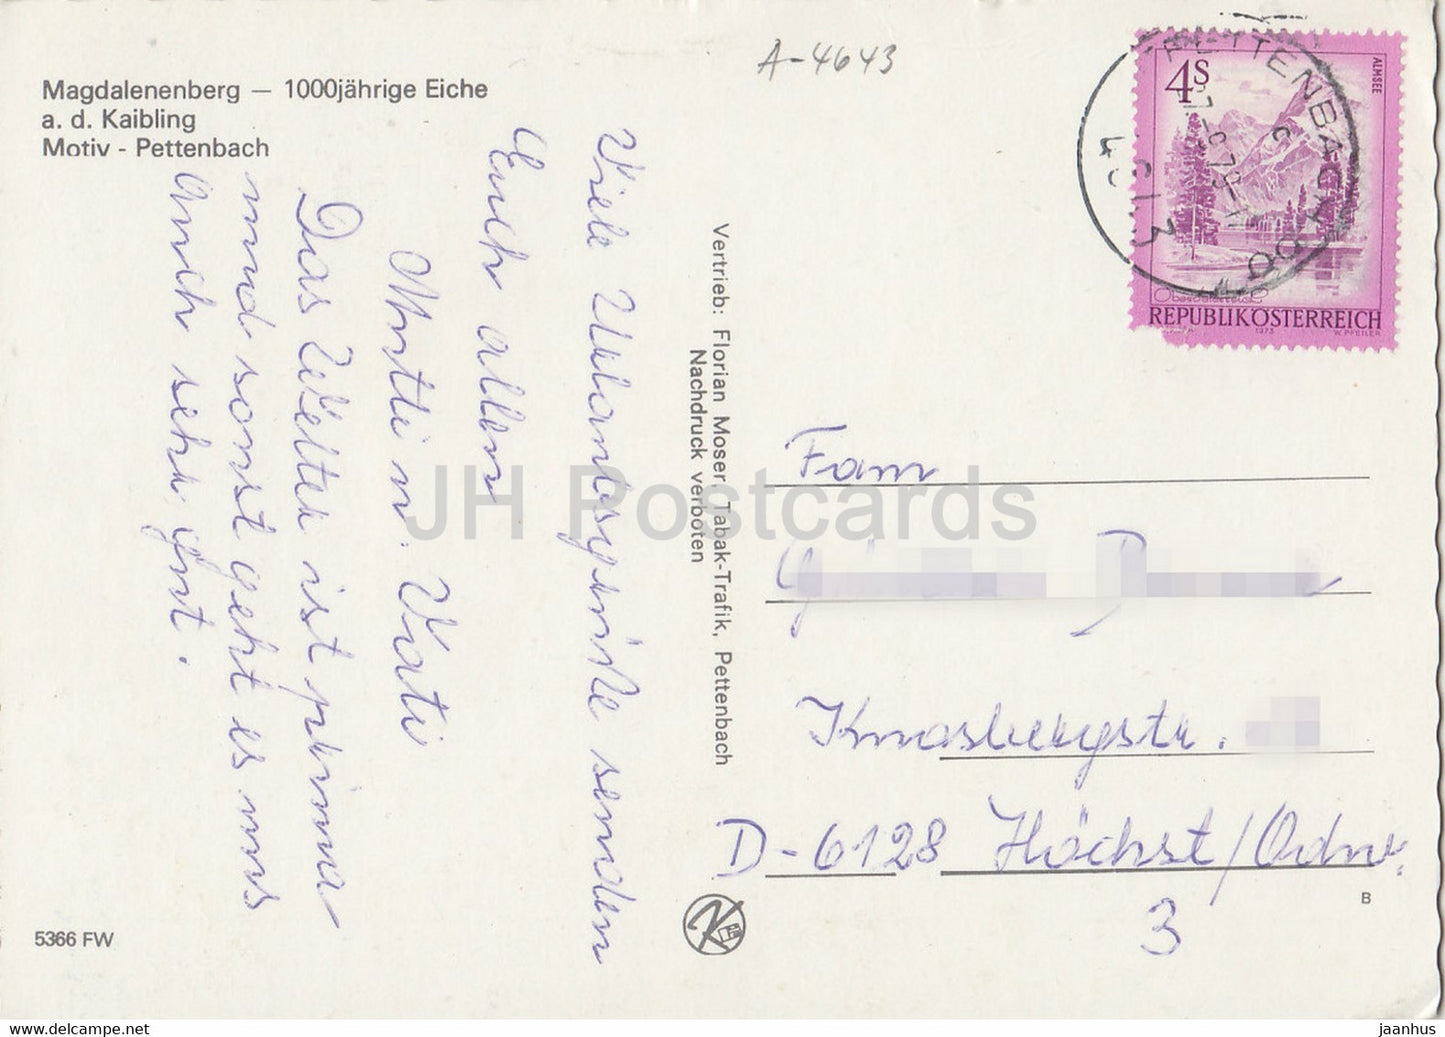 Magdalenenberg — 1000jährige Eiche
a. d. Kaibling
Motiv - Pettenbach
A-4643
4S
ALMSEE
REPUBLIK ÖSTERREICH
1973 W. PFEILER
PETTENBACH
4643
Viele Urlaubsgrüße senden
Euch allen
Mutti u. Vati
Das Wetter ist prima
und sonst geht es uns
auch sehr gut.
Vertrieb: Florian Moser, Tabak-Trafik, Pettenbach
Nachdruck verboten
Fam
D-6128 Höchst/Odnw.
3
B
5366 FW
JH Postcards
www.delcampe.net
jaanhus